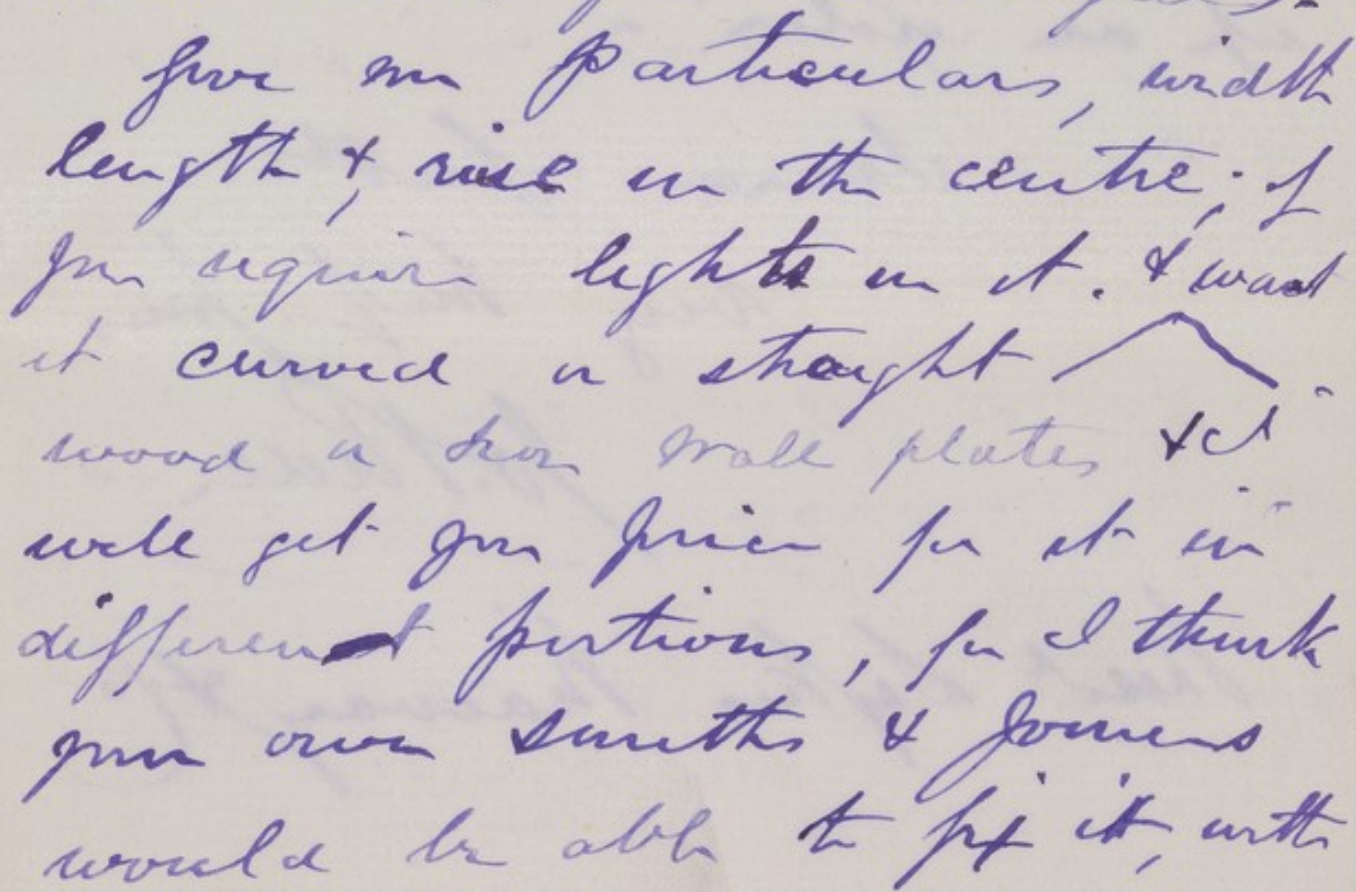 give me particulars, width
length &, rise in the centre; if
you require lights in it. & want
it curved or straight
wood or iron wall plates & I
will get you prices for it in
different portions, for I think
your own smiths & Joiners
would be able to fix it, with